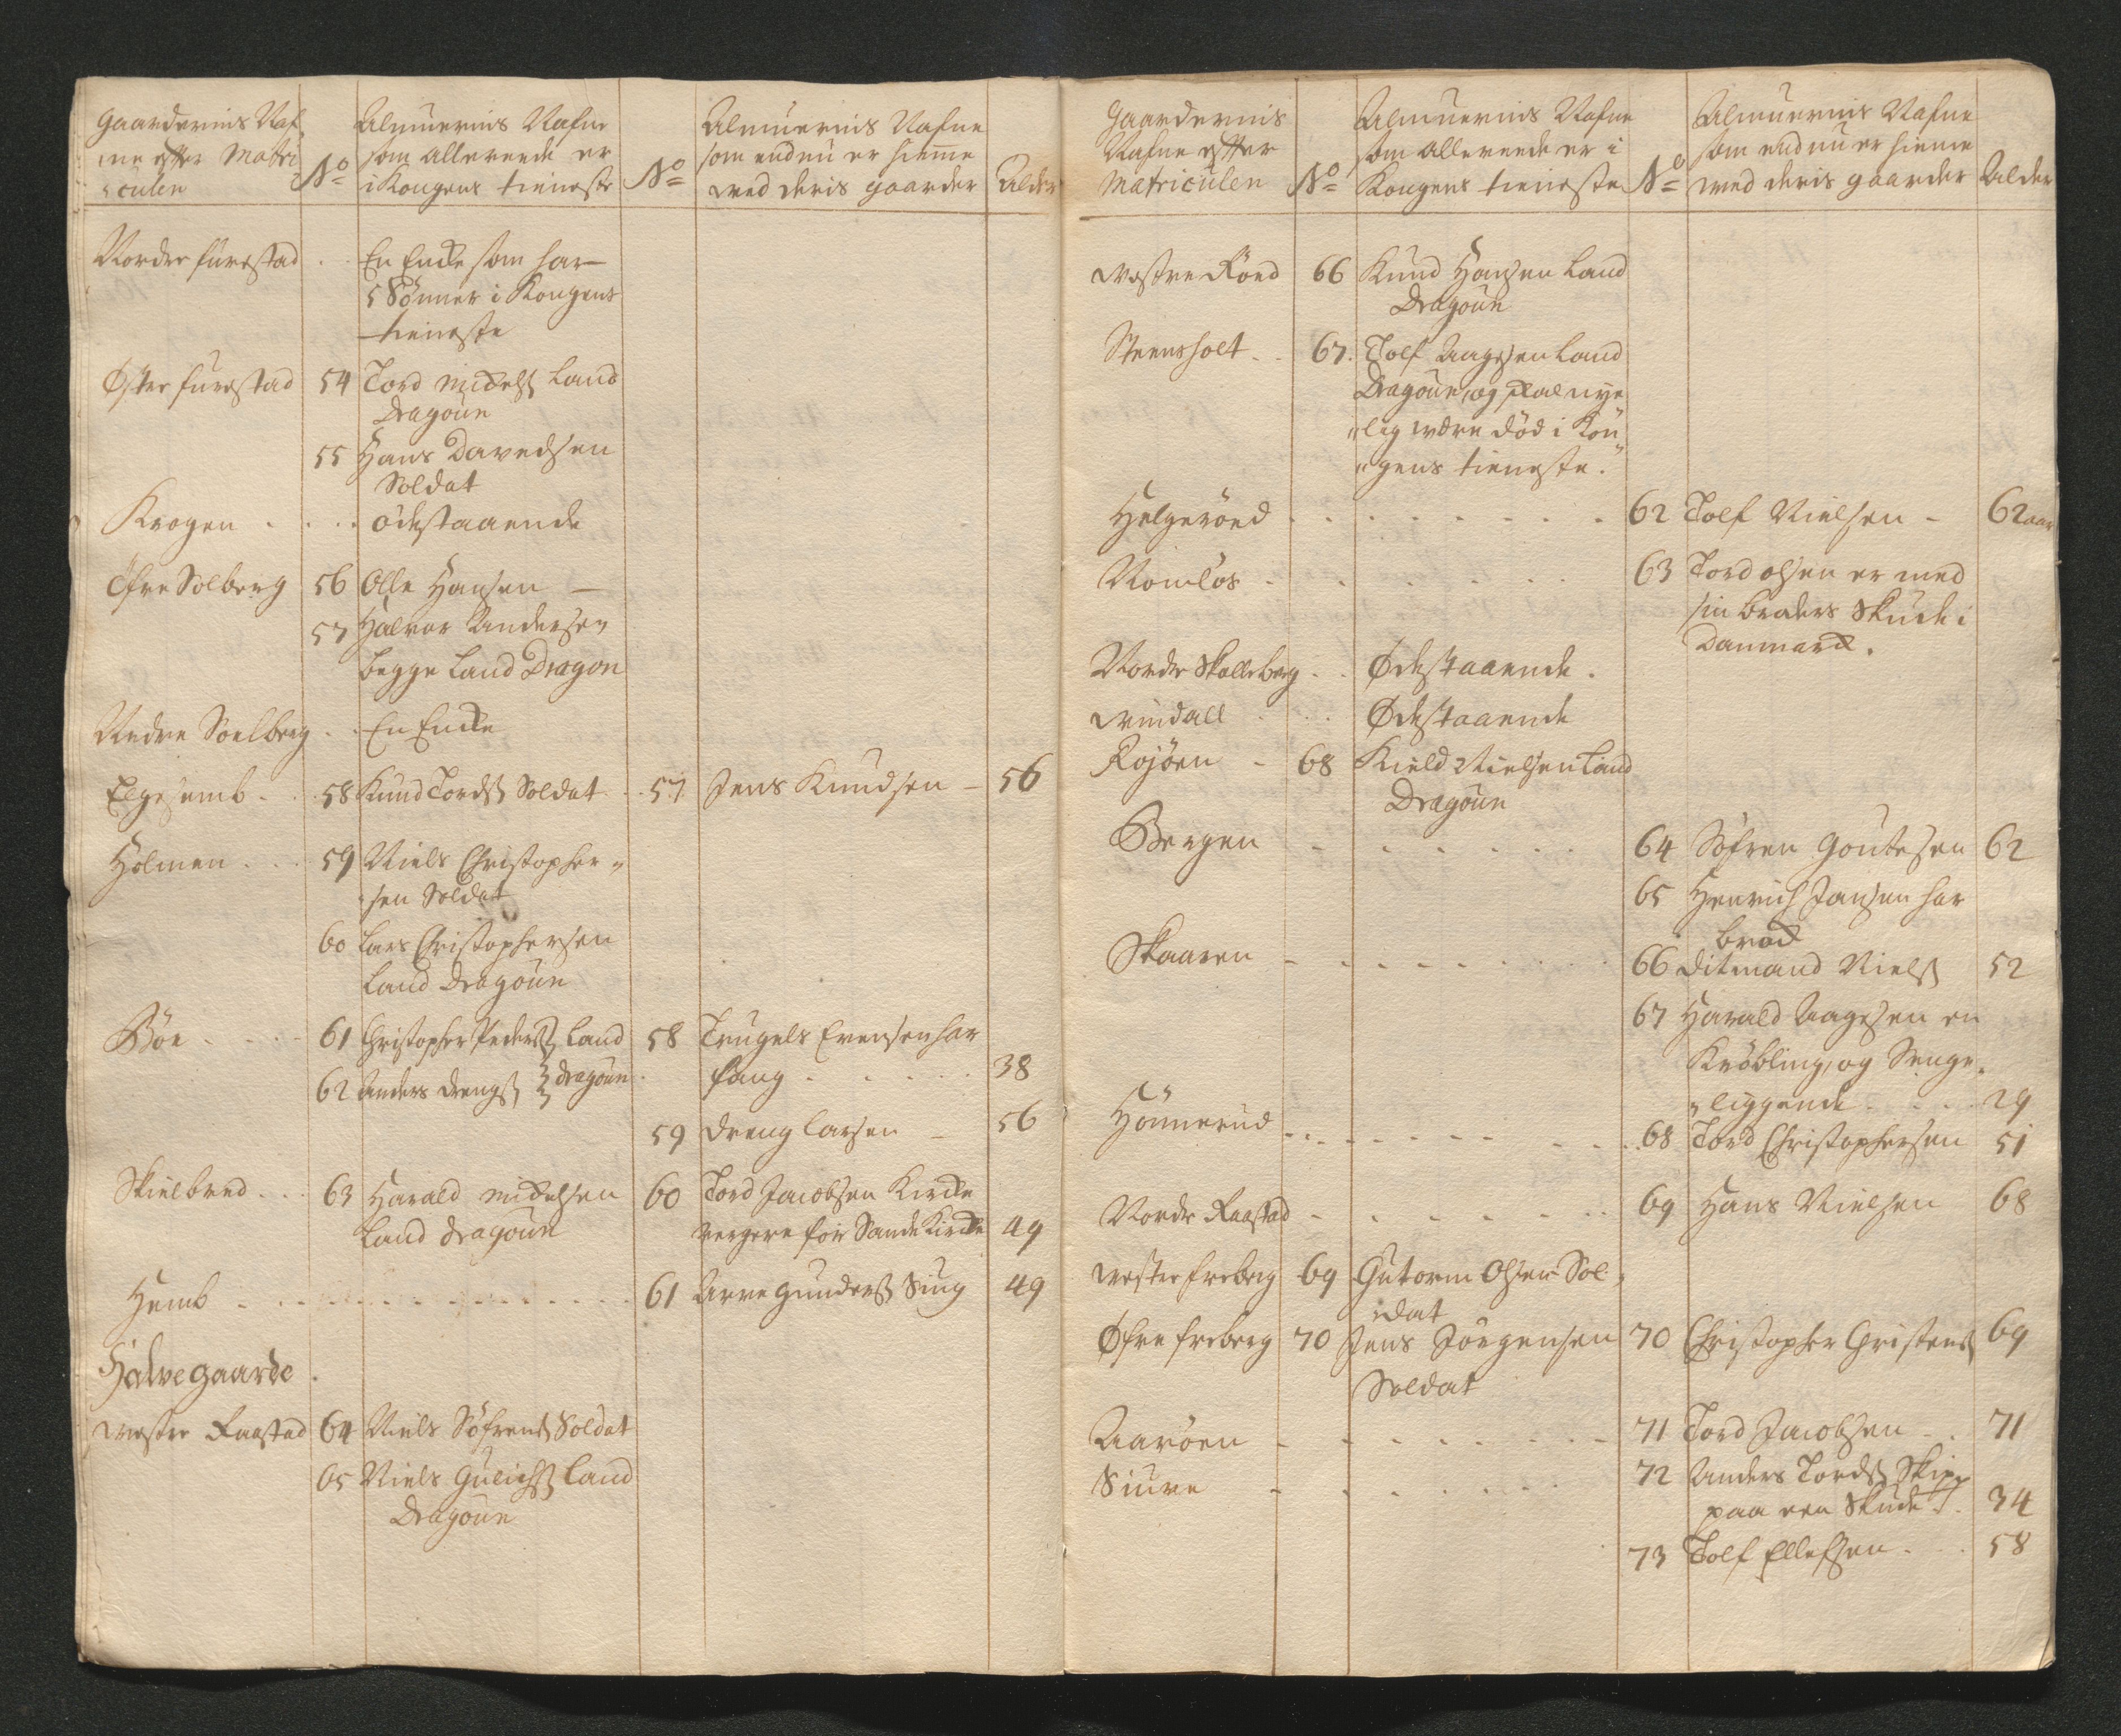 Gaardernis Naf„
ne efter Matri
„culen
No
Almuernis Nafne
som allereede er
i Kongens tieniste
No
Almuernis Nafne
som end nu er hieme
ved deris gaarder
Alder
Nordre furestad . . En Encke som har
5 Sönner i Kongens
tieniste
Öster furestad 54 Tord Mickels Land
Dragoun
55 Hans Davedsen
Soldat
Krogen . . . . ödestaaende
Öfre Solberg 56 Olle Hansen —
57 Halvor Andersen
begge Land Dragon
Nedre Soelberg . . En Encke
Elgesemb . . 58 Knud Tords Soldat . . 57 Jens Knudsen — 56
Holmen . . . 59 Niels Christopher„
„sen Soldat
60 Lars Christophersen
Land Dragoun
Böe . . . . 61 Christopher Peders Land 58 Trugels Evensen har
62 Anders Drengs dragoun . fang . . . . . 38
59 Dreng Larsen — 56
Skielbred . . . 63 Harald Mickelsen 60 Tord Jacobsen Kircke
Land dragoun vergere for Sande Kircke 49
Hemb . . . . . . . . . . . 61 Arve Gunders Siug 49
Halvegaarde .
Westre Raastad 64 Niels Söfrens Soldat
65 Niels Gulichs Land
Dragoun
Gaardernis
Nafne efter
Matriculen
No
Almuernis Nafne
som allereede er i
Kongens tieniste
No
Almuernis Nafne
som end nu er hieme
ved deris gaarder
Alder
Westre Röed 66 Knud Hansen Land
Dragoun
Steensholt . . 67. Tolf Aagesen Land
Dragoun, og skal nye
„lig være död i Kon„
„gens tieniste.
Helgeröed . . . . . . . . 62 Tolf Nielsen — 62 aar
Romlös . . . . . . 63 Tord Olsen er med
sin broders Skude i
Danmarck.
Nordre Skalleberg . . Ödestaaende .
Windall . . . Ödestaaende
Röjöen — 68 Kield Nielsen Land
Dragoun
Bergen . . . . . . 64 Söfren Goutesen 62
65 Henrich Jansen har
brock
Skaaren — . . . . . . . 66 Ditmand Niels 52
67 Harald Aagesen en
Kröbling, og Senge„
„liggende . . . 29
Honnerud . . . . . . . . . 68 Tord Christophersen 51
Nordre Raastad — . . . . . . 69 Hans Nielsen 68
Westre freberg 69 Gutorm Olsen Sol„
„dat
Öfre freberg 70 Jens Jörgensen 70 Christopher Christens 69
Soldat
Aaröen — . . . . . . . 71 Tord Jacobsen . . 71
Siure — . . . . . . 72 Anders Tords Skipp
paa een Skude . 34
73 Tolf Ellefsen . . . 58